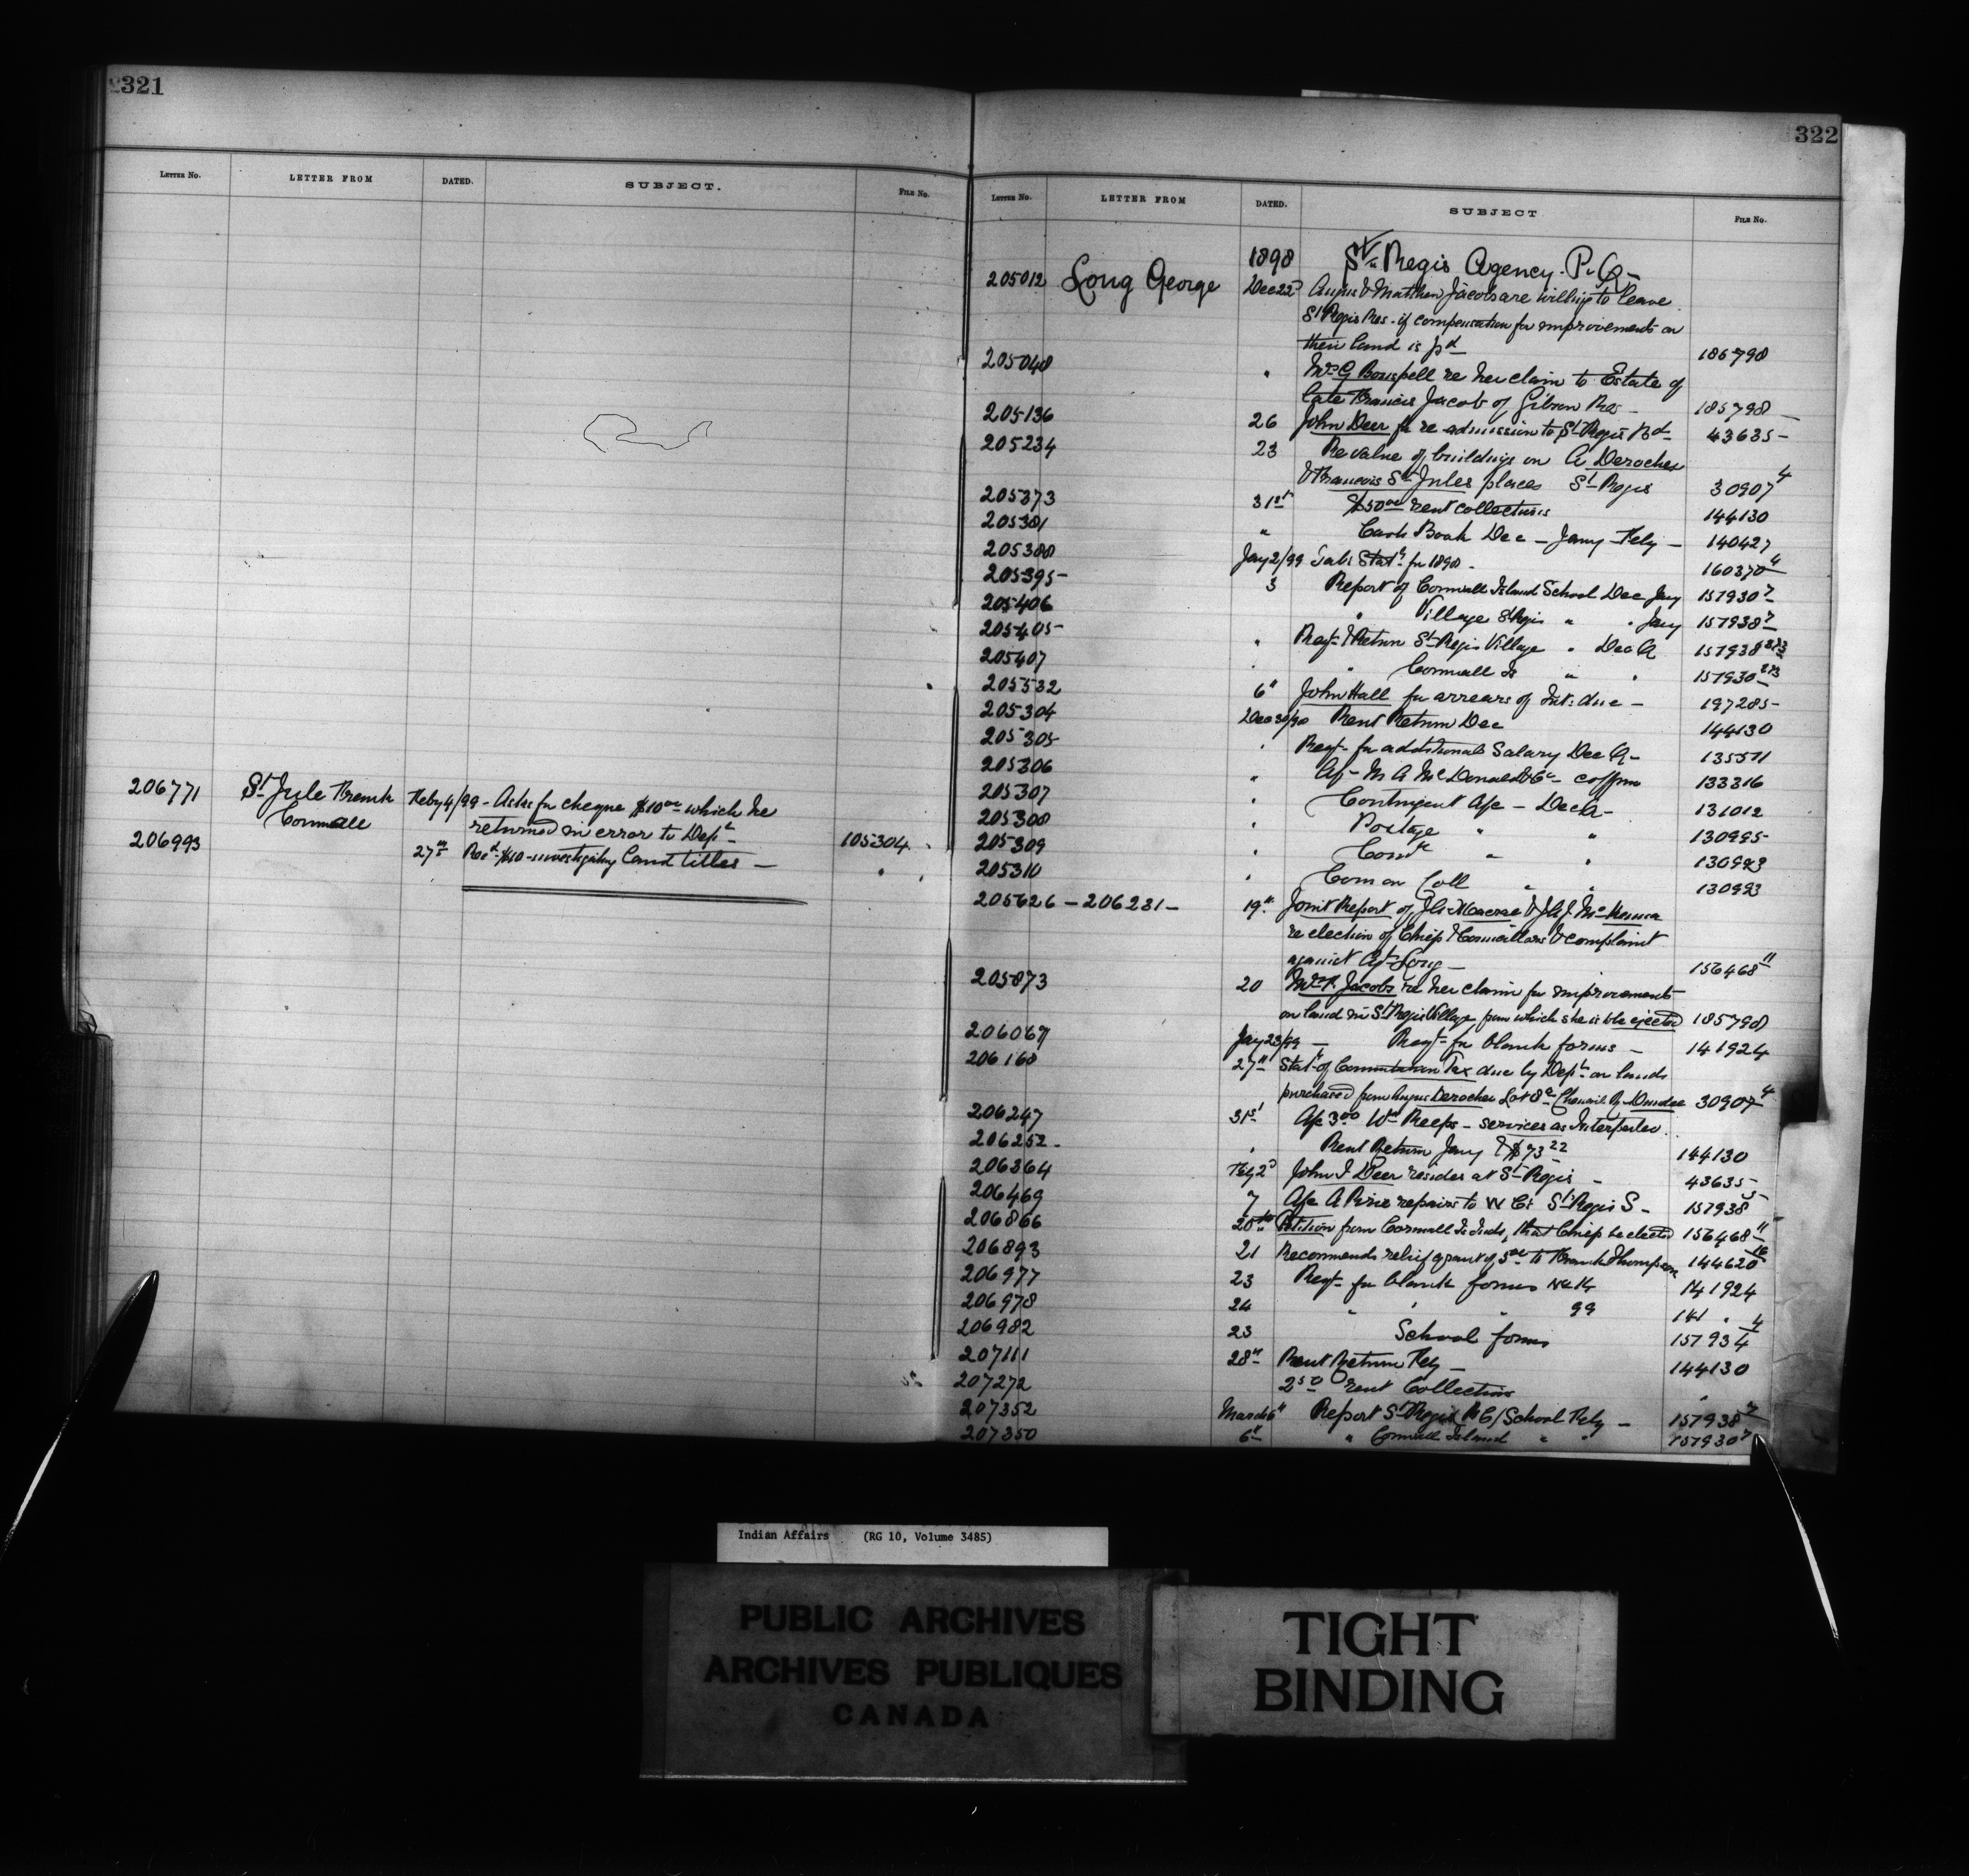 321
LETTER No. LETTER FROM DATED. SUBJECT. FILE No.
206771 St Jule Frank Feby 4/99 - Asks for cheque $10 00 which he
Cornwall returned in error to Dept 105304
206993 27th Recd $10 - investigating land titles -
322
LETTER No. LETTER FROM DATED. SUBJECT FILE No.
1898 St Regis Agency. P.Q -
205012 Long George Dec 22d Angus & Matthew Jacobs are willing to leave
St Regis Res. if compensation for improvements on
their land is pd 186798
205048 " Mrs G Bouspell re her claim to Estate of
late Francis Jacob of Gibson Res - 185798 -
205136 26 John Deer for re admission to St Regis Bd 43635 -
205234 23 Re value of buildings on A Deroches
& Francois St Jules places St Regis 30907 4
205373 31st $50 00 rent collections 144130
205381 " Cash Book Dec - Jany Feby - 140427
205388 Jany 2/99 Tab: Statt for 1898 - 160370 4
205395 - 3 Report of Cornwall Island School Dec Jany 157930 7
205406 " Village St Regis " " Jany 157938 7
205405 - " Reqt & Return St Regis Village " Dec Q 157938
205407 " " Cornwall Is " " 157930
205532 6" John Hall for arrears of Int: due - 197285 -
205304 Dec 30/98 Rent Return Dec 144130
205305 " Reqt for additional Salary Dec Q - 135571
205306 " A/c - M A McDonald & Co - coffin 133316
205307 " Contingent A/c - Dec Q - 131012
205308 " Postage " " 130995
205309 " Cond " " 130923
205310 " Com on Coll " " 130993
205626 - 206231 - 19" Joint Report of J A Macrae & J A J McKenna
re election of Chiefs & Councillors & complaint
against Agt Long - 156468 11
205873 20 Mrs P. Jacobs re her claim for improvements
on land in St Regis Village from which she is to be ejected 185798
206067 Jany 23/99 - Reqt for blank forms - 141924
206168 27" Statt of Commutation Tax due by Dept on lands
purchased from Angus Deroches Lot 8a Chenail Rg Dundee 30907 4
206247 31st A/c 3 00 Wm Reeps - services as Interpreter.
206252 - " Rent Return Jany & $73 22 144130
206364 Feby 2d John I Deer resides at St Regis - 43635 -
206469 7 A/c A Pirie repairs to W C: St Regis S - 157938 5
206866 20th Petition from Cornwall Is Inds, that Chief be elected 156468 11
206893 21 Recommends relief grant of 5 00 to Frank Thompson 144620 16
206977 23 Reqt for blank forms No 14 141924
206978 24 " " " 99 141 "
206982 23 School forms 157934 4
207111 28" Rent Return Feby - 144130
207272 250 rent Collections "
207352 March 6" Report St Regis (R C) School Feby - 157938 7
207350 6" " Cornwall Island " " 157930 7
Indian Affairs (RG 10, Volume 3485)
PUBLIC ARCHIVES
ARCHIVES PUBLIQUES
CANADA
TIGHT
BINDING